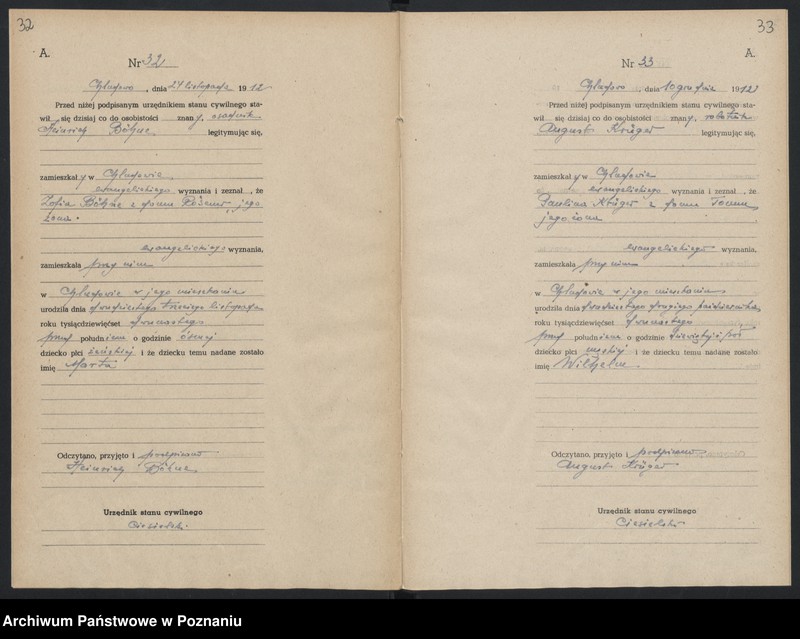 32
A.
Nr 32
, dnia 24 listopada 1912
Przed niżej podpisanym urzędnikiem stanu cywilnego sta-
wił się dzisiaj co do osobistości znany, osadnik
Heinrich Böhne legitymując się,
zamieszkały w
ewangelickiego wyznania i zeznał, że
Zofia Böhne z domu jego
żona.
ewangelickiego wyznania,
zamieszkała przy nim
w w jego mieszkaniu
urodziła dnia dwudziestego trzeciego listopada
roku tysiącdziewięćset dwunastego
przed południem o godzinie ósmej
dziecko płci żeńskiej i że dziecku temu nadane zostało
imię Marta
Odczytano, przyjęto i podpisano
Heinrich Böhne
Urzędnik stanu cywilnego
33
A.
Nr 33
, dnia 10 grudnia 1912
Przed niżej podpisanym urzędnikiem stanu cywilnego sta-
wił się dzisiaj co do osobistości znany, robotnik
August Krüger legitymując się,
zamieszkały w
ewangelickiego wyznania i zeznał, że
Paulina Krüger z domu
jego żona
ewangelickiego wyznania,
zamieszkała przy nim
w w jego mieszkaniu
urodziła dnia dwudziestego drugiego października
roku tysiącdziewięćset dwunastego
przed południem o godzinie
dziecko płci męskiej i że dziecku temu nadane zostało
imię Wilhelm
Odczytano, przyjęto i podpisano
August Krüger
Urzędnik stanu cywilnego
Ciesielski
Archiwum Państwowe w Poznaniu